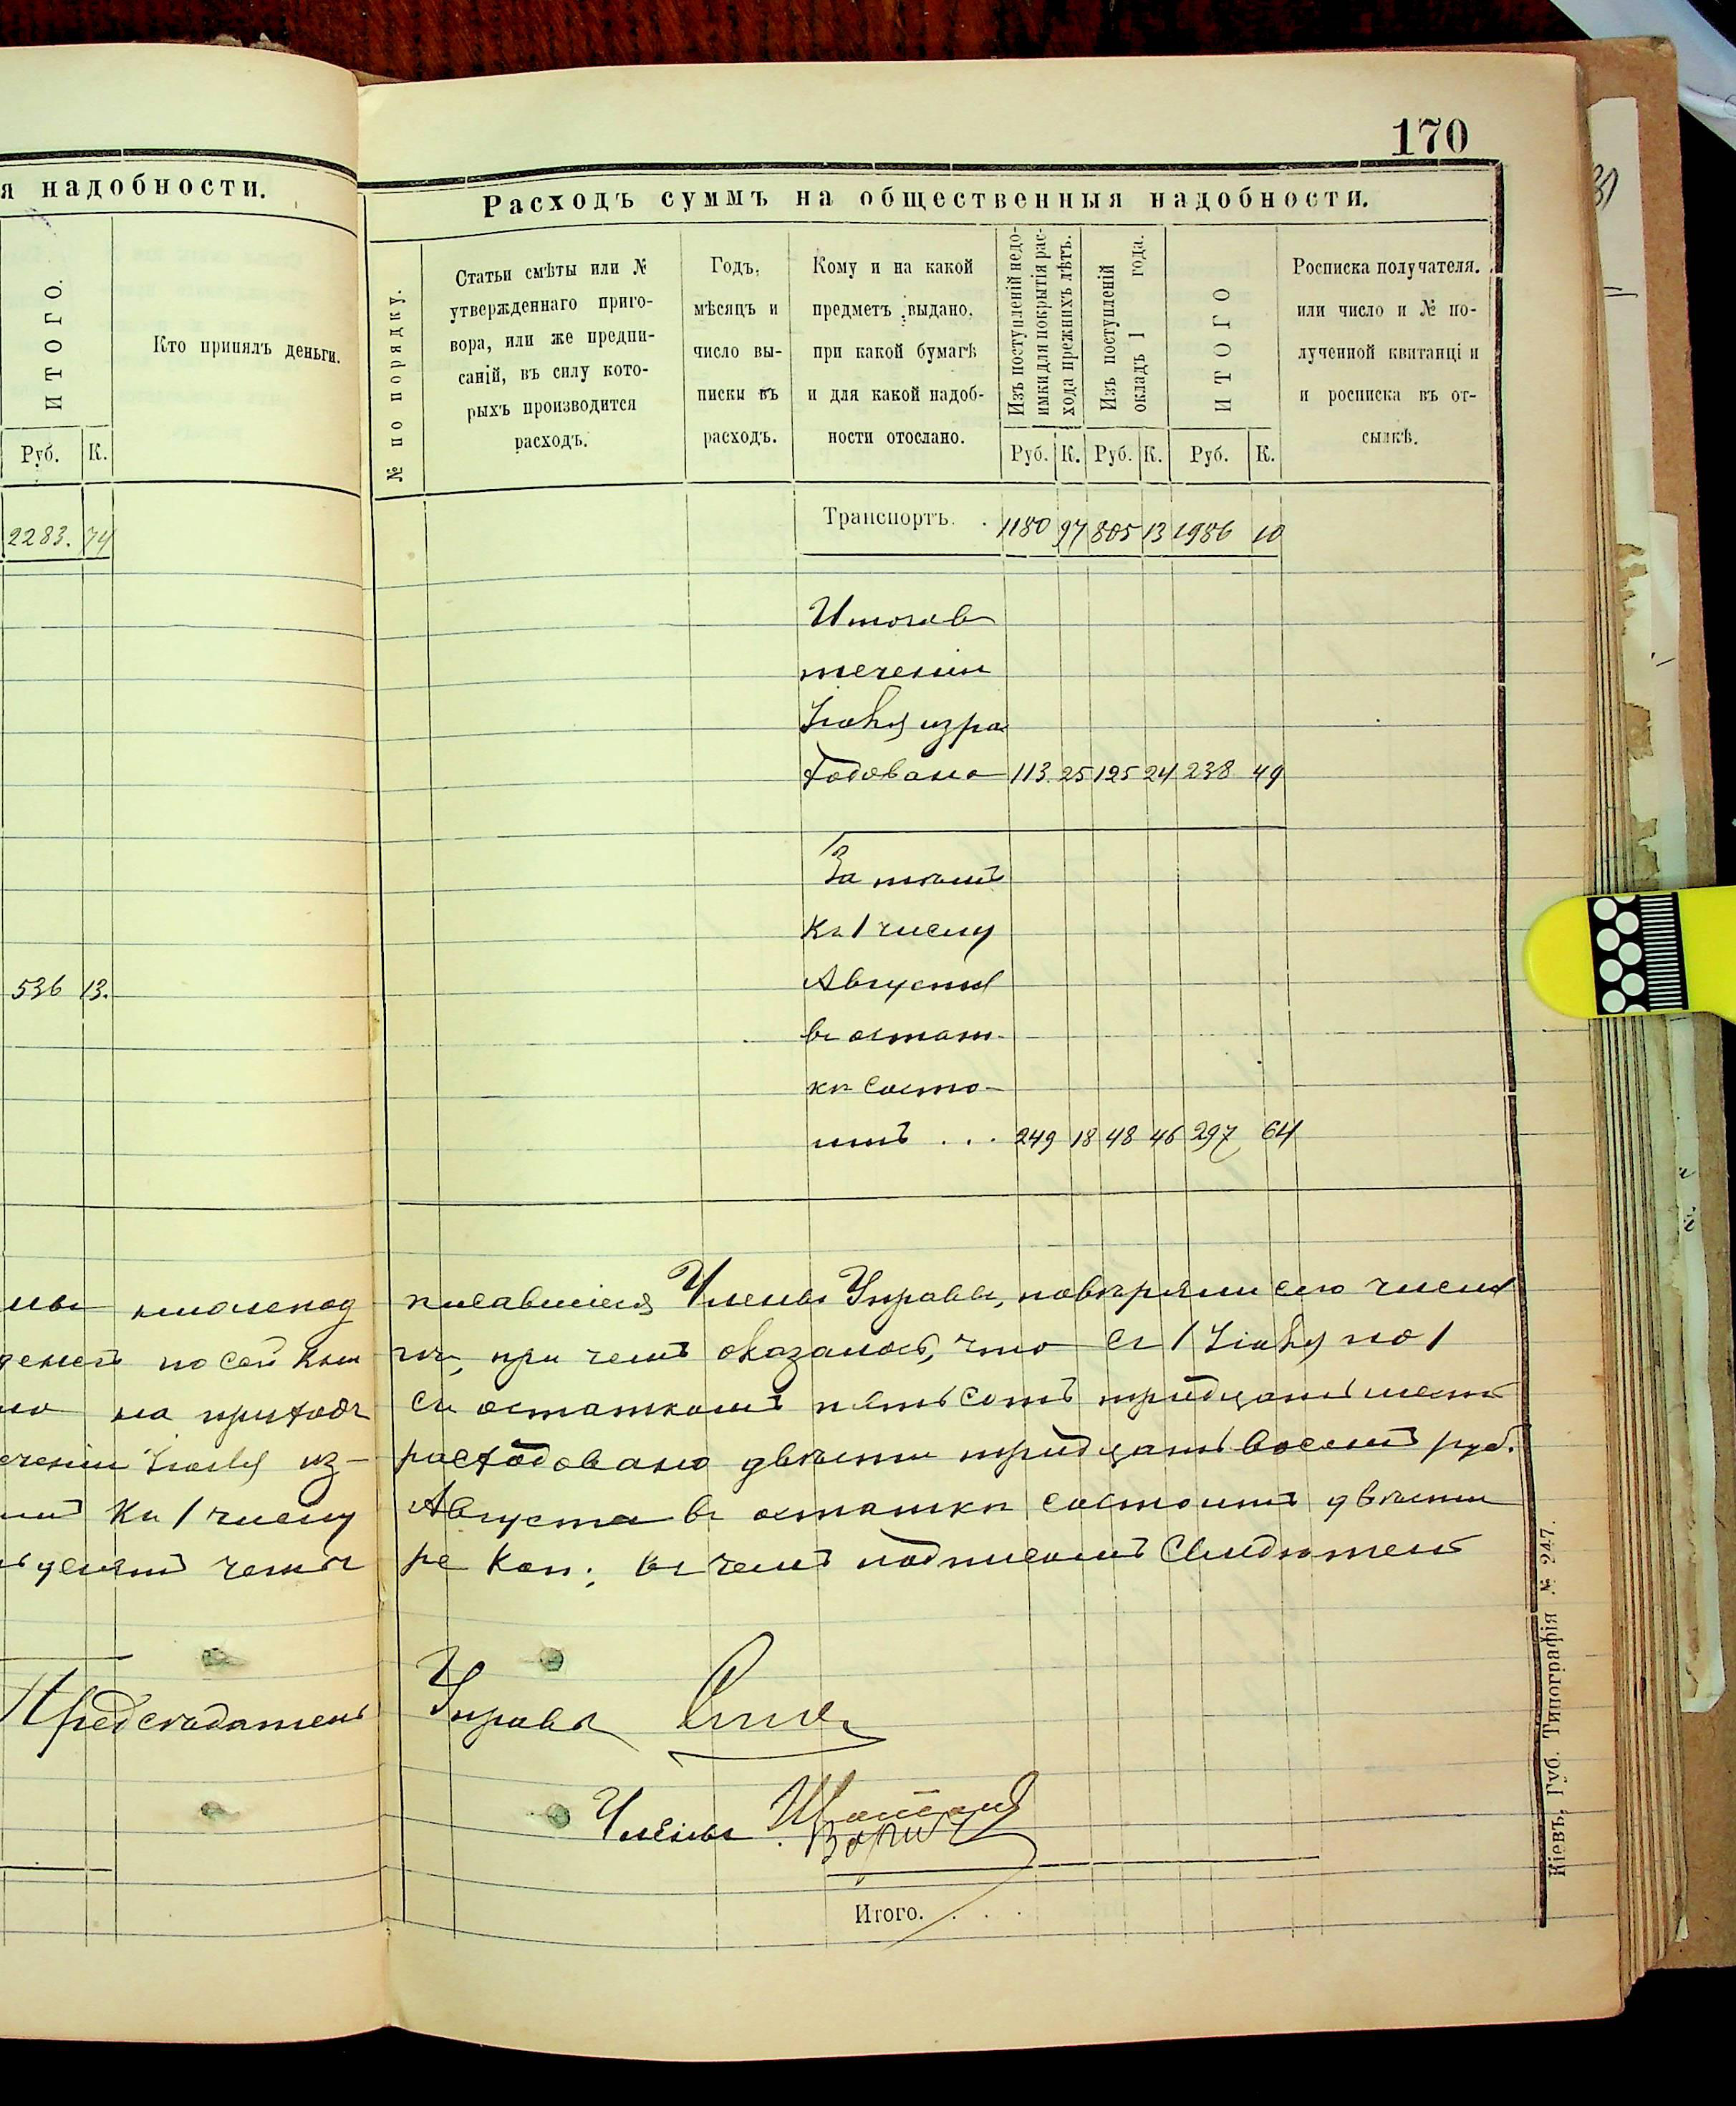 170
я надобности.
ИТОГО.
Кто принялъ деньги.
Руб. К.
2283. 74
536 13.
мы
денегъ по сей кни
на приходъ
ечении Іюля из-
Къ 1 числу
десятъ четы
Предсѣдатель
Расходъ суммъ на общественныя надобности.
№ по порядку.
Статьи смѣты или №
утвержденнаго приго-
вора, или же предпи-
саній, въ силу кото-
рыхъ производится
расходъ.
Годъ,
мѣсяцъ и
число вы-
писки въ
расходъ.
Кому и на какой
предметъ выдано,
при какой бумагѣ
и для какой надоб-
ности отослано.
Изъ поступленій недо-
имки для покрытія рас-
хода прежнихъ лѣтъ.
Изъ поступленій
окладъ 1 года.
ИТОГО
Росписка получателя.
или число и № по-
лученной квитанціи
и росписка въ от-
сылкѣ.
Руб. К. Руб. К. Руб. К.
Транспортъ. . 1180 97 805 13 1986 10
Итого в
течении
Іюля изра
ходовано 113. 25 125 24 238 49
За тѣмъ
Къ 1 числу
Августа
въ остат-
кѣ состо-
итъ . . . 249 18 48 46 297 64
писавшіеся Члены Управы, повѣряли сего числа
гѣ, при чемъ оказалось, что съ 1 Іюля по 1
съ остаткомъ пятьсотъ тридцать шесть
расходовано двѣсти тридцать восемь руб.
Августа въ остаткѣ состоитъ двѣсти
ре коп; въ чемъ подписомъ Свидѣтель
Управы
Члены
Итого. . . .
Кіевъ, Губ. Типографія № 247.